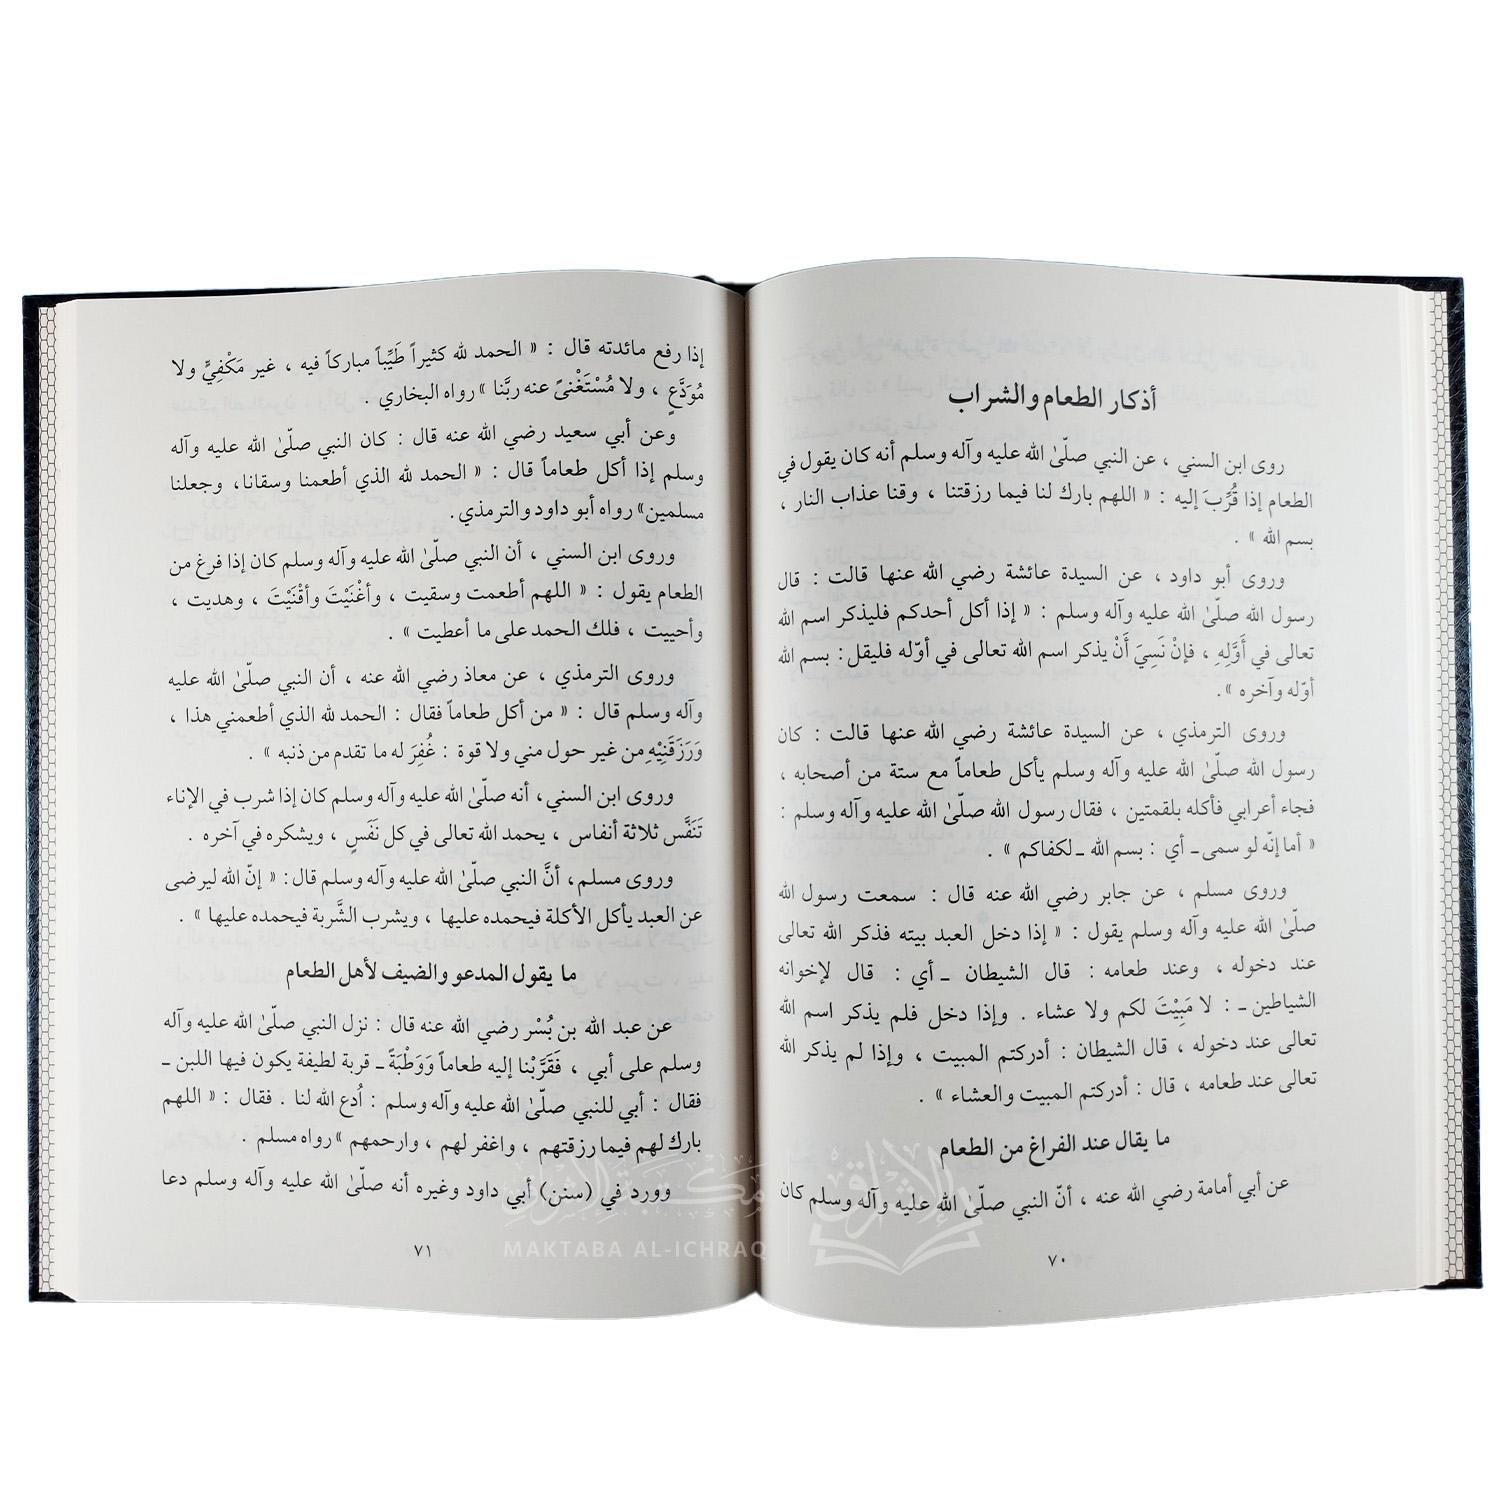 أذكار الطعام والشراب
روى ابن السني ، عن النبي صلّىٰ الله عليه وآله وسلم أنه كان يقول في
الطعام إذا قُرِّبَ إليه : « اللهم بارك لنا فيما رزقتنا ، وقنا عذاب النار ،
بسم الله » .
وروى أبو داود ، عن السيدة عائشة رضي الله عنها قالت : قال
رسول الله صلّىٰ الله عليه وآله وسلم : « إذا أكل أحدكم فليذكر اسم الله
تعالى في أَوَّلِهِ ، فإنْ نَسِيَ أَنْ يذكر اسم الله تعالى في أوّله فليقل : بسم الله
أوّله وآخره ».
وروى الترمذي ، عن السيدة عائشة رضي الله عنها قالت : كان
رسول الله صلّىٰ الله عليه وآله وسلم يأكل طعاماً مع ستة من أصحابه ،
فجاء أعرابي فأكله بلقمتين ، فقال رسول الله صلّىٰ الله عليه وآله وسلم :
« أما إنّه لو سمى ـ أي : بسم الله ـ لكفاكم » .
وروى مسلم ، عن جابر رضي الله عنه قال : سمعت رسول الله
صلّىٰ الله عليه وآله وسلم يقول : « إذا دخل العبد بيته فذكر الله تعالى
عند دخوله ، وعند طعامه : قال الشيطان ـ أي : قال لإخوانه
الشياطين ـ : لا مَبِيْتَ لكم ولا عشاء . وإذا دخل فلم يذكر اسم الله
تعالى عند دخوله ، قال الشيطان : أدركتم المبيت ، وإذا لم يذكر الله
تعالى عند طعامه ، قال : أدركتم المبيت والعشاء » .
ما يقال عند الفراغ من الطعام
عن أبي أمامة رضي الله عنه ، أنّ النبي صلّىٰ الله عليه وآله وسلم كان
٧٠
إذا رفع مائدته قال : « الحمد لله كثيراً طَيِّباً مباركاً فيه ، غير مَكْفِيٍّ ولا
مُوَدَّعٍ ، ولا مُسْتَغْنىً عنه ربَّنا » رواه البخاري .
وعن أبي سعيد رضي الله عنه قال : كان النبي صلّىٰ الله عليه وآله
وسلم إذا أكل طعاماً قال : « الحمد لله الذي أطعمنا وسقانا، وجعلنا
مسلمين» رواه أبو داود والترمذي.
وروى ابن السني ، أن النبي صلّىٰ الله عليه وآله وسلم كان إذا فرغ من
الطعام يقول : « اللهم أطعمت وسقيت ، وأغْنَيْتَ وأقْنَيْتَ ، وهديت ،
وأحييت ، فلك الحمد على ما أعطيت » .
وروى الترمذي ، عن معاذ رضي الله عنه ، أن النبي صلّىٰ الله عليه
وآله وسلم قال : « من أكل طعاماً فقال : الحمد لله الذي أطعمني هذا ،
وَرَزَقَنِيْهِ من غير حول مني ولا قوة : غُفِرَ له ما تقدم من ذنبه » .
وروى ابن السني، أنه صلّىٰ الله عليه وآله وسلم كان إذا شرب في الإناء
تَنَفَّس ثلاثة أنفاس ، يحمد الله تعالى في كل نَفَسٍ ، ويشكره في آخره .
وروى مسلم، أنَّ النبي صلّىٰ الله عليه وآله وسلم قال: « إنّ الله ليرضى
عن العبد يأكل الأكلة فيحمده عليها ، ويشرب الشَّربة فيحمده عليها » .
ما يقول المدعو والضيف لأهل الطعام
عن عبد الله بن بُسْر رضي الله عنه قال : نزل النبي صلّىٰ الله عليه وآله
وسلم على أبي ، فَقَرَّبْنا إليه طعاماً وَوَطْبَةً ـ قربة لطيفة يكون فيها اللبن ـ
فقال : أبي للنبي صلّىٰ الله عليه وآله وسلم : اُدع الله لنا . فقال : « اللهم
بارك لهم فيما رزقتهم ، واغفر لهم ، وارحمهم » رواه مسلم .
وورد في (سنن) أبي داود وغيره أنه صلّىٰ الله عليه وآله وسلم دعا
٧١
مكتبة الإشراق
MAKTABA AL-ICHRAQ
الإشراق